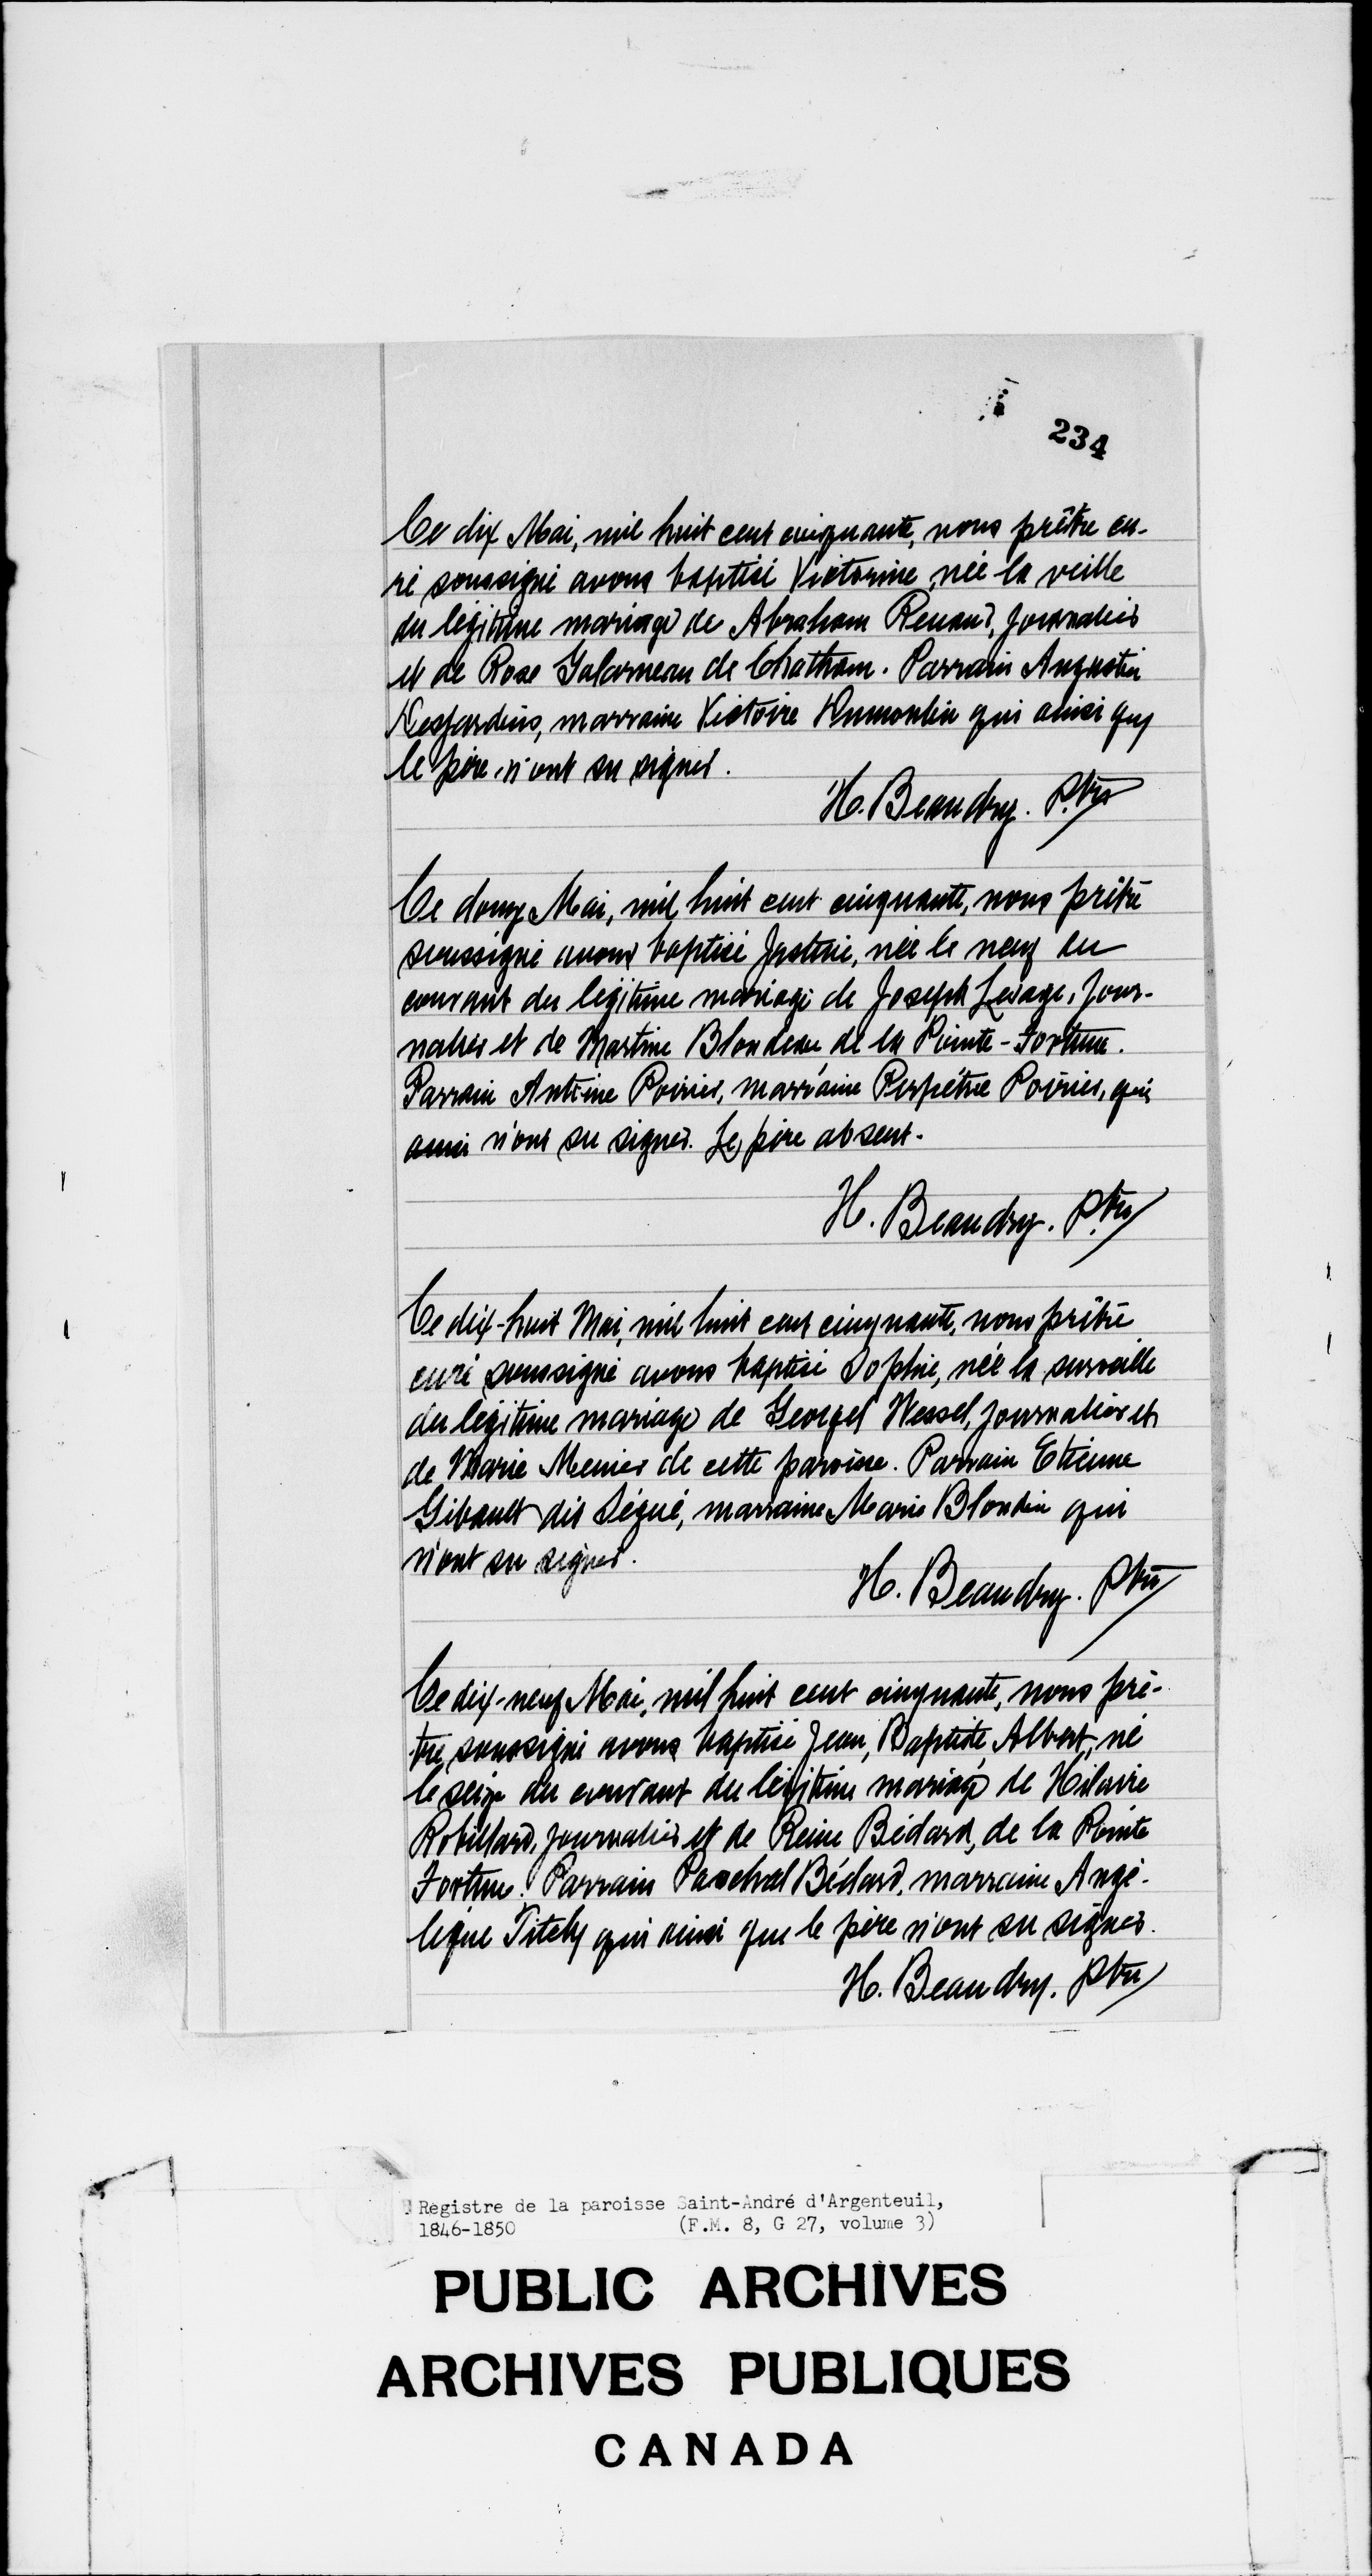 234
Ce dix Mai, mil huit cent cinquante, nous prêtre cu-
ré soussigné avons baptisé Victorine, née la veille
du légitime mariage de Abraham Renaud, journalier
et de Rose Galarneau de Chatham. Parrain Augustin
Desjardins, marraine Victoire Dumoulin qui ainsi que
le père n'ont su signer.
H. Beaudry. Ptre
Ce douze Mai, mil huit cent cinquante, nous prêtre
soussigné avons baptisé Justine, née le neuf du
courant du légitime mariage de Joseph Lesage, jour-
nalier et de Martine Blondeau de la Pointe-Fortune.
Parrain Antoine Poirier, marraine Perpétue Poirier, qui
n'ont su signer. Le père absent.
H. Beaudry. Ptre
Ce dix-huit Mai, mil huit cent cinquante, nous prêtre
curé soussigné avons baptisé Sophie, née la surveille
du légitime mariage de Georges Wessel, journalier et
de Marie Menier de cette paroisse. Parrain Etienne
Gibault dit Ségué, marraine Marie Blondin qui
n'ont su signer.
H. Beaudry. Ptre
Ce dix-neuf Mai, mil huit cent cinquante, nous prê-
tre soussigné avons baptisé Jean, Baptiste, Albert, né
le seize du courant du légitime mariage de Hilaire
Robillard, journalier et de Reine Bédard, de la Pointe
Fortune. Parrain Paschal Bédard, marraine Angé-
lique Titely qui ainsi que le père n'ont su signer.
H. Beaudry. Ptre
Registre de la paroisse Saint-André d'Argenteuil,
1846-1850 (F.M. 8, G 27, volume 3)
PUBLIC ARCHIVES
ARCHIVES PUBLIQUES
CANADA